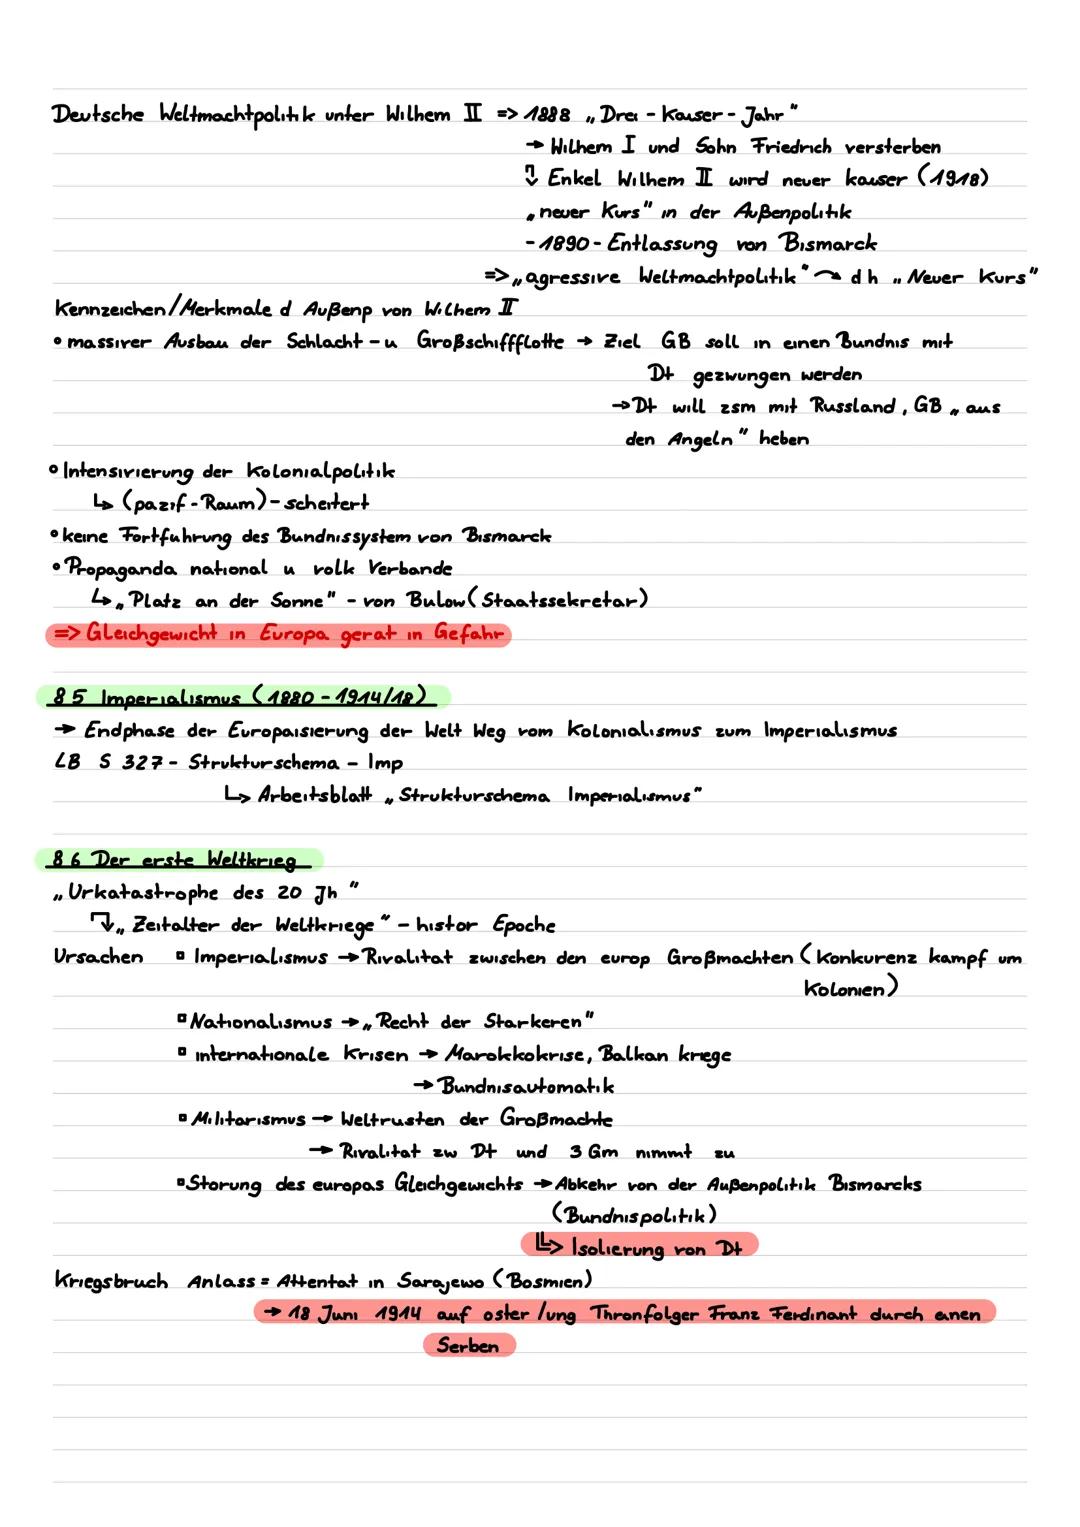 Deutsche Weltmachtpolitik unter Wilhem II => 1888 „Drei-Kaiser-Jahr"
→ Wilhem I und Sohn Friedrich versterben
↴ Enkel Wilhem II wird neuer kaiser (1918)
„neuer Kurs" in der Außenpolitik
- 1890 - Entlassung von Bismarck
=> „agressive Weltmachtpolitik" ↷ d h „Neuer Kurs"
Kennzeichen/Merkmale d Außenp von Wilhem II
° massiver Ausbau der Schlacht - u Großschiffflotte → Ziel GB soll in einen Bundnis mit
Dt gezwungen werden
→ Dt will zsm mit Russland, GB „aus
den Angeln" heben
° Intensivierung der Kolonialpolitik
↳ (pazif-Raum) - scheitert
° keine Fortfuhrung des Bundnissystem von Bismarck
° Propaganda national u volk Verbande
↳ „Platz an der Sonne" - von Bulow (Staatssekretar)
=> Gleichgewicht in Europa gerat in Gefahr
8 5 Imperialismus (1880 - 1914/18)
→ Endphase der Europaisierung der Welt Weg vom Kolonialismus zum Imperialismus
LB S 327 - Strukturschema - Imp
↳ Arbeitsblatt „Strukturschema Imperialismus"
8 6 Der erste Weltkrieg
„Urkatastrophe des 20 Jh "
↴ „Zeitalter der Weltkriege" - histor Epoche
Ursachen ▫ Imperialismus → Rivalitat zwischen den europ Großmachten (Konkurenz kampf um
Kolonien)
▫ Nationalismus → „Recht der Starkeren"
▫ internationale Krisen → Marokkokrise, Balkan kriege
→ Bundnisautomatik
▫ Militarismus → Weltrusten der Großmachte
→ Rivalitat zw Dt und 3 Gm nimmt zu
▫ Storung des europas Gleichgewichts → Abkehr von der Außenpolitik Bismarcks
(Bundnispolitik)
╚> Isolierung von Dt
Kriegsbruch Anlass = Attentat in Sarajewo (Bosmien)
→ 18 Juni 1914 auf oster /ung Thronfolger Franz Ferdinant durch einen
Serben